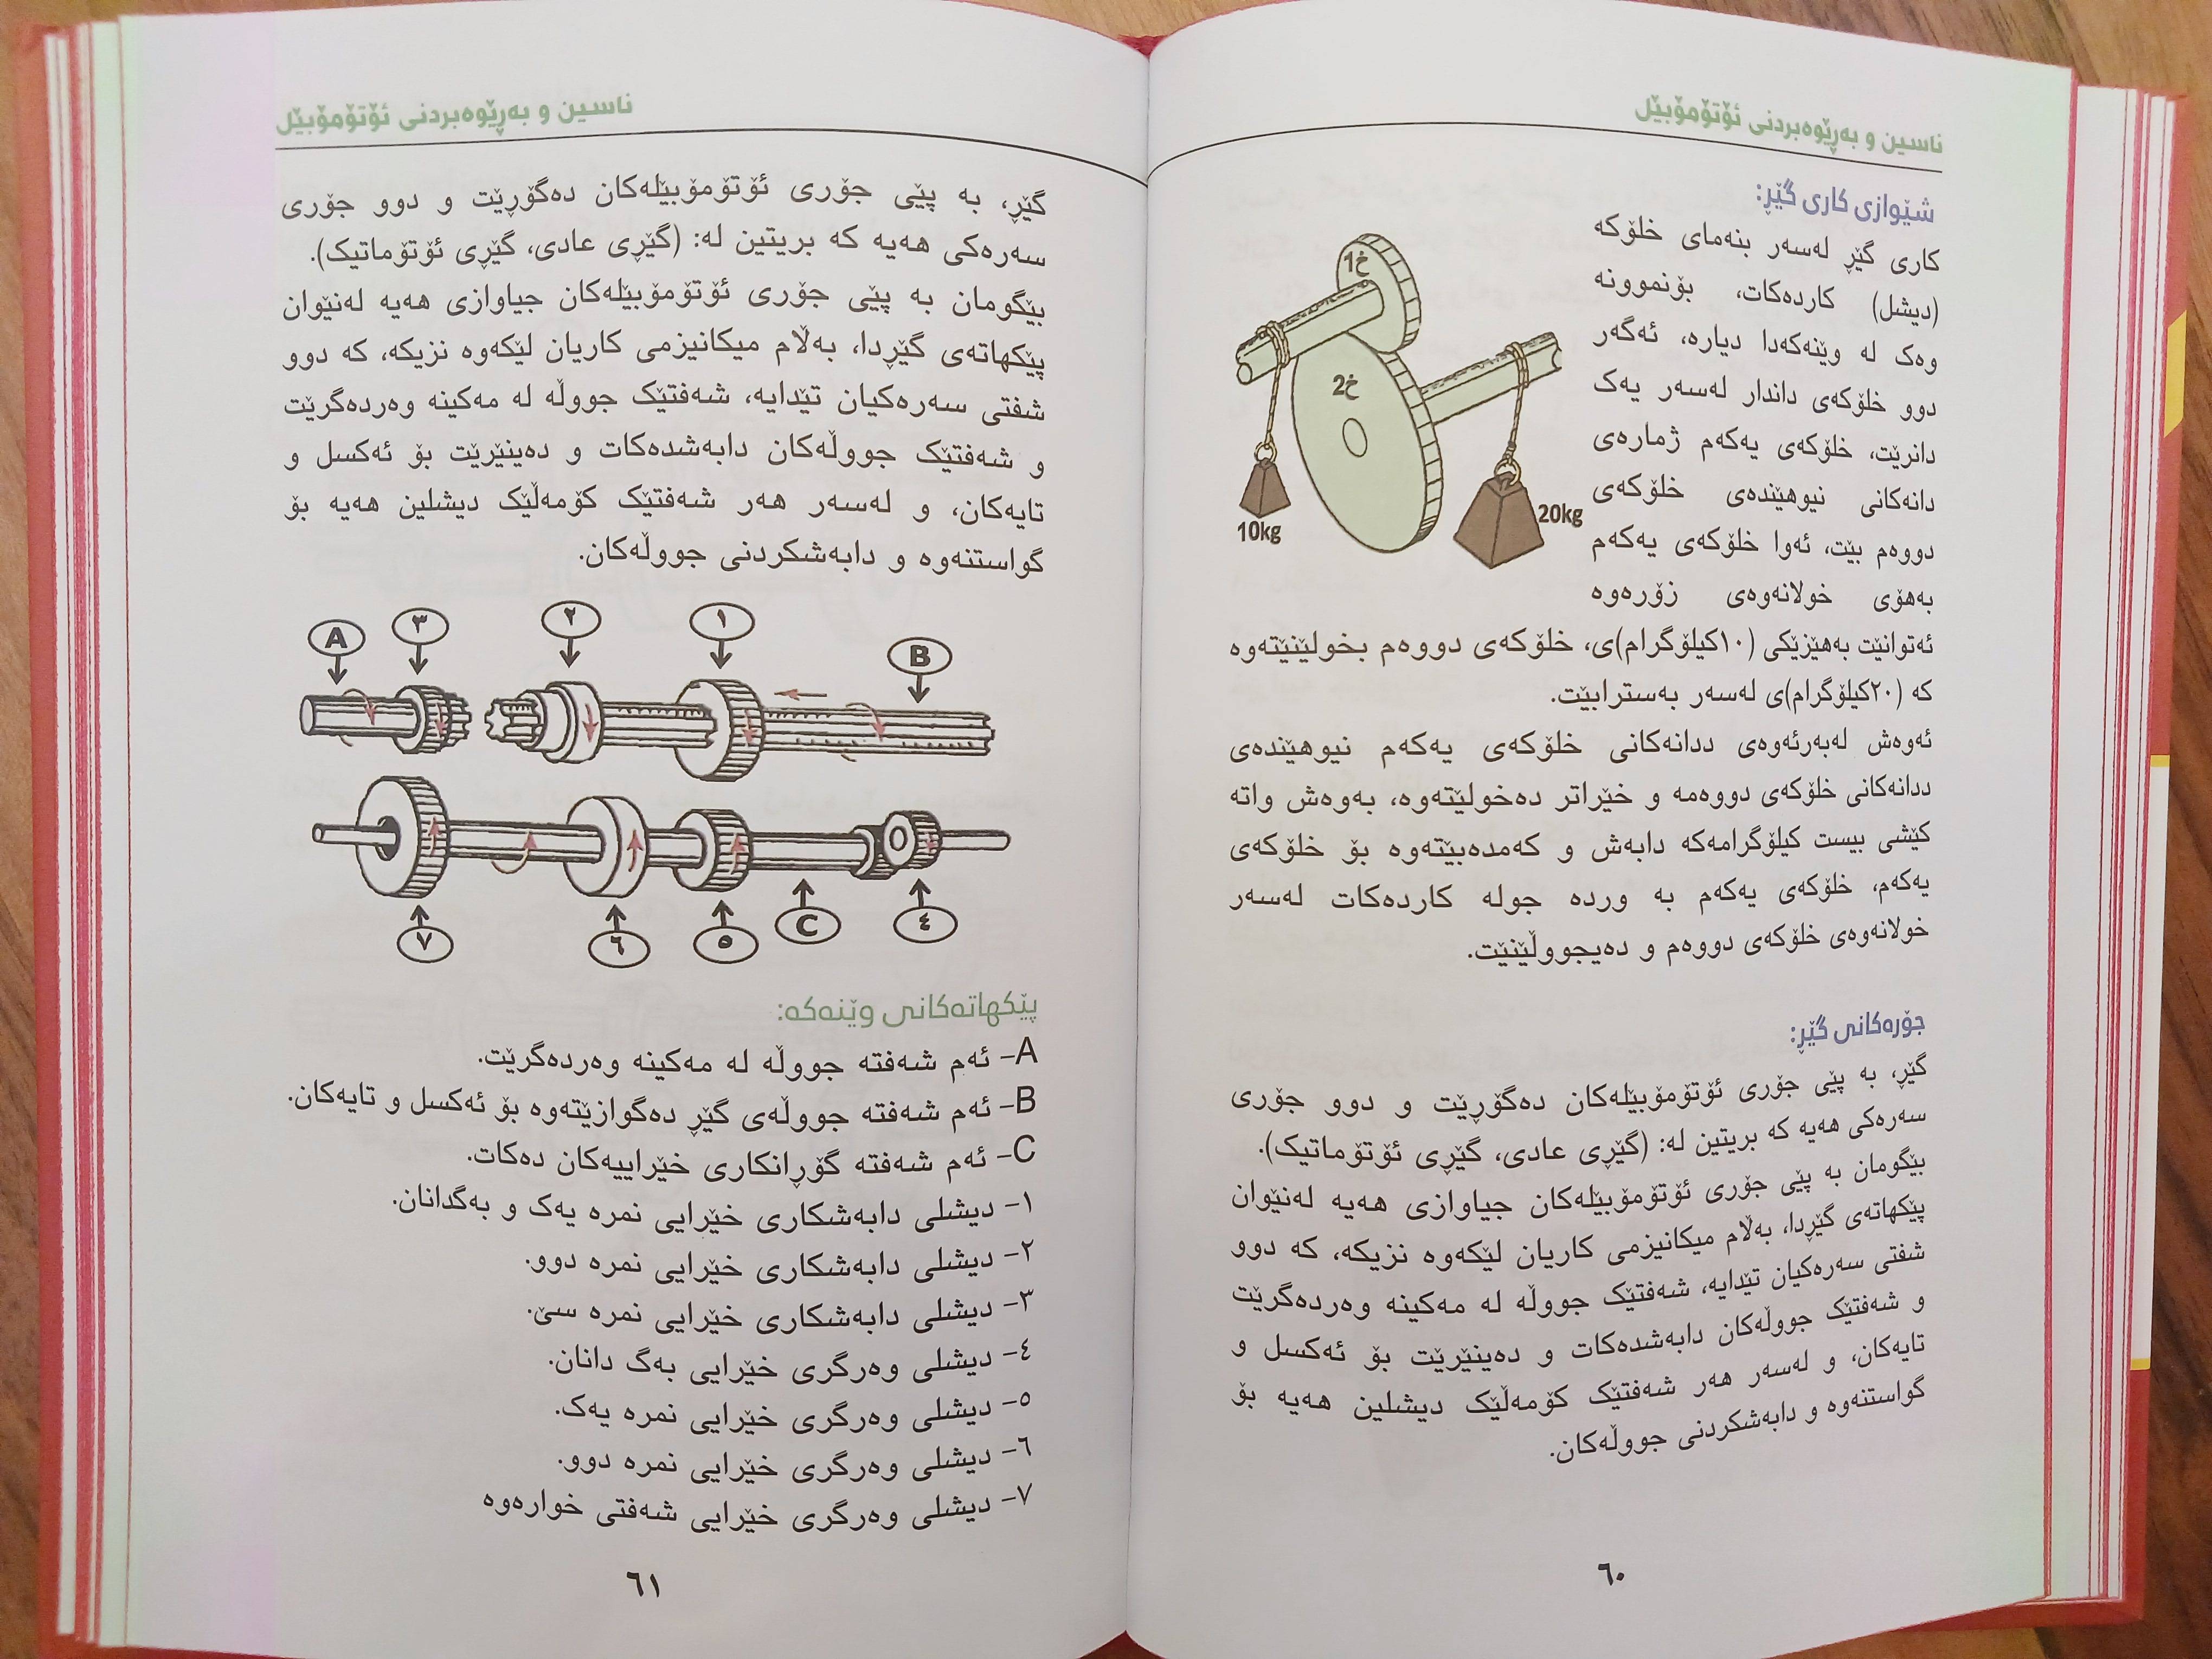 ناسین و بەڕێوەبردنی ئۆتۆمۆبێل
شێوازی کاری گێڕ:
کاری گێڕ لەسەر بنەمای خلۆکە
(دیشل) کاردەکات، بۆنموونە
وەک لە وێنەکەدا دیارە، ئەگەر
دوو خلۆکەی داندار لەسەر یەک
دانرێت، خلۆکەی یەکەم ژمارەی
دانەکانی نیوهێندەی خلۆکەی
دووەم بێت، ئەوا خلۆکەی یەکەم
بەهۆی خولانەوەی زۆرەوە
ئەتوانێت بەهێزێکی (١٠کیلۆگرام)ی، خلۆکەی دووەم بخولێنێتەوە
کە (٢٠کیلۆگرام)ی لەسەر بەسترابێت.
خ1
خ2
10kg
20kg
ئەوەش لەبەرئەوەی ددانەکانی خلۆکەی یەکەم نیوهێندەی
ددانەکانی خلۆکەی دووەمە و خێراتر دەخولێتەوە، بەوەش واتە
کێشی بیست کیلۆگرامەکە دابەش و کەمدەبێتەوە بۆ خلۆکەی
یەکەم، خلۆکەی یەکەم بە وردە جولە کاردەکات لەسەر
خولانەوەی خلۆکەی دووەم و دەیجووڵێنێت.
جۆرەکانی گێڕ:
گێڕ، بە پێی جۆری ئۆتۆمۆبێلەکان دەگۆڕێت و دوو جۆری
سەرەکی هەیە کە بریتین لە: (گێڕی عادی، گێڕی ئۆتۆماتیک).
بێگومان بە پێی جۆری ئۆتۆمۆبێلەکان جیاوازی هەیە لەنێوان
پێکهاتەی گێڕدا، بەڵام میکانیزمی کاریان لێکەوە نزیکە، کە دوو
شفتی سەرەکیان تێدایە، شەفتێک جووڵە لە مەکینە وەردەگرێت
و شەفتێک جووڵەکان دابەشدەکات و دەینێرێت بۆ ئەکسل و
تایەکان، و لەسەر هەر شەفتێک کۆمەڵێک دیشلین هەیە بۆ
گواستنەوە و دابەشکردنی جووڵەکان.
٦٠
ناسین و بەڕێوەبردنی ئۆتۆمۆبێل
گێڕ، بە پێی جۆری ئۆتۆمۆبێلەکان دەگۆڕێت و دوو جۆری
سەرەکی هەیە کە بریتین لە: (گێڕی عادی، گێڕی ئۆتۆماتیک).
بێگومان بە پێی جۆری ئۆتۆمۆبێلەکان جیاوازی هەیە لەنێوان
پێکهاتەی گێڕدا، بەڵام میکانیزمی کاریان لێکەوە نزیکە، کە دوو
شفتی سەرەکیان تێدایە، شەفتێک جووڵە لە مەکینە وەردەگرێت
و شەفتێک جووڵەکان دابەشدەکات و دەینێرێت بۆ ئەکسل و
تایەکان، و لەسەر هەر شەفتێک کۆمەڵێک دیشلین هەیە بۆ
گواستنەوە و دابەشکردنی جووڵەکان.
A ٣ ٢ ١ B
٧ ٦ ٥ C ٤
پێکهاتەکانی وێنەکە:
A- ئەم شەفتە جووڵە لە مەکینە وەردەگرێت.
B- ئەم شەفتە جووڵەی گێڕ دەگوازێتەوە بۆ ئەکسل و تایەکان.
C- ئەم شەفتە گۆڕانکاری خێراییەکان دەکات.
١- دیشلی دابەشکاری خێرایی نمرە یەک و بەگدانان.
٢- دیشلی دابەشکاری خێرایی نمرە دوو.
٣- دیشلی دابەشکاری خێرایی نمرە سێ.
٤- دیشلی وەرگری خێرایی بەگ دانان.
٥- دیشلی وەرگری خێرایی نمرە یەک.
٦- دیشلی وەرگری خێرایی نمرە دوو.
٧- دیشلی وەرگری خێرایی شەفتی خوارەوە
٦١